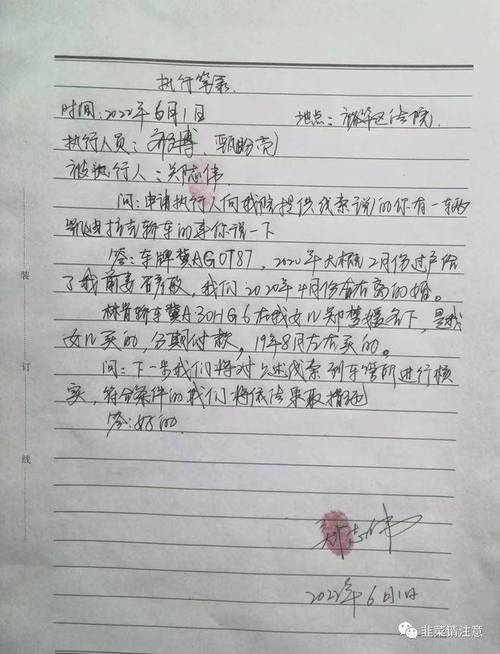 执行笔录
时间:2022年6月1日 地点:裕华区法院
执行人员:
被执行人:郑志伟
问:申请执行人向我院提供线索说的你有一辆
凯迪拉克轿车的事你说一下
答:车牌冀AG0T87,2020年大概2月份过户给
了我前妻,我们2020年4月份左右离的婚。
林肯轿车冀A30HG6在我女儿郑梦 名下,是我
女儿买的,分期付款,19年8月左右买的。
问:下一步我们将对上述线索到车管所进行核
实,符合条件的我们将依法采取措施
答:好的.
郑志伟
2022年6月1日
装
订
线
韭菜请注意